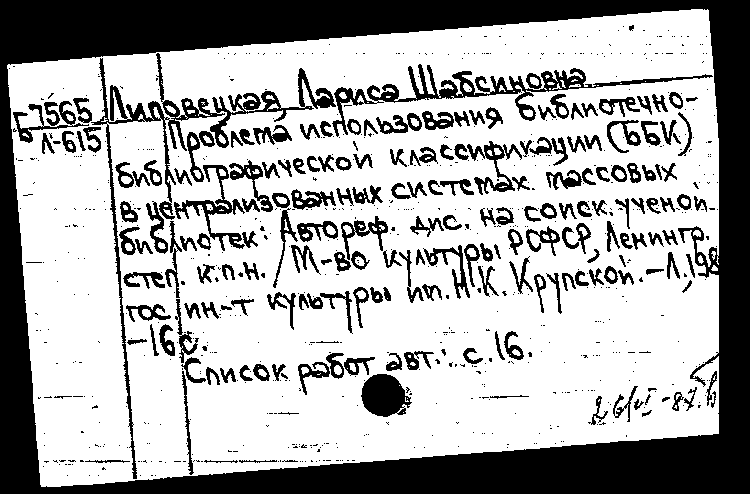 Б7565 Липовецкая, Лариса Шабсиновна
Л-615 Проблема использования библиотечно-
библиографической классификации (ББК)
в централизованных системах массовых
библиотек: Автореф. дис. на соиск. ученой
степ. к.п.н. / М-во культуры РСФСР, Ленингр.
гос. ин-т культуры им. Н.К. Крупской. -Л., 198
-16 с.
Список работ авт.: с. 16.